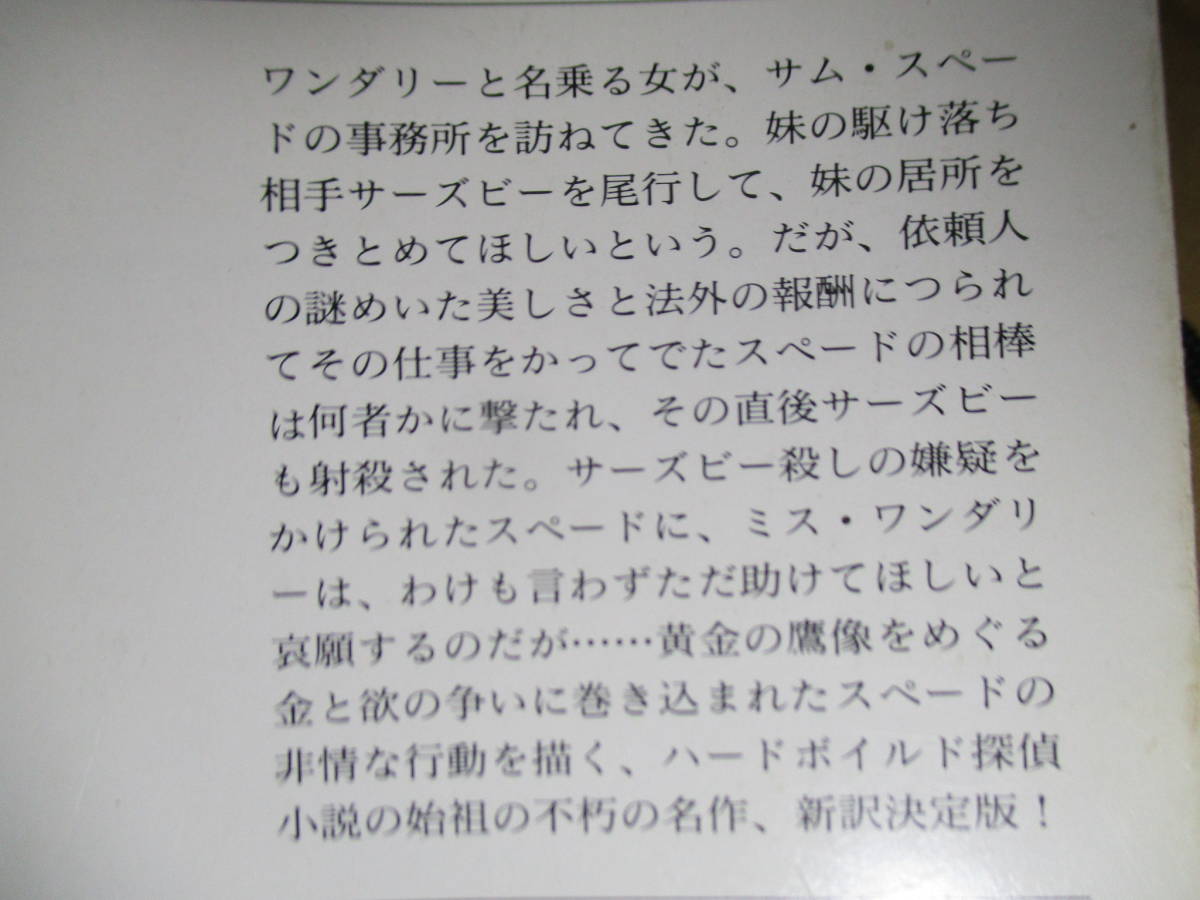 ワンダリーと名乗る女が、サム・スペー
ドの事務所を訪ねてきた。妹の駆け落ち
相手サーズビーを尾行して、妹の居所を
つきとめてほしいという。だが、依頼人
の謎めいた美しさと法外の報酬につられ
てその仕事をかってでたスペードの相棒
は何者かに撃たれ、その直後サーズビー
も射殺された。サーズビー殺しの嫌疑を
かけられたスペードに、ミス・ワンダリ
ーは、わけも言わずただ助けてほしいと
哀願するのだが……黄金の鷹像をめぐる
金と欲の争いに巻き込まれたスペードの
非情な行動を描く、ハードボイルド探偵
小説の始祖の不朽の名作、新訳決定版！